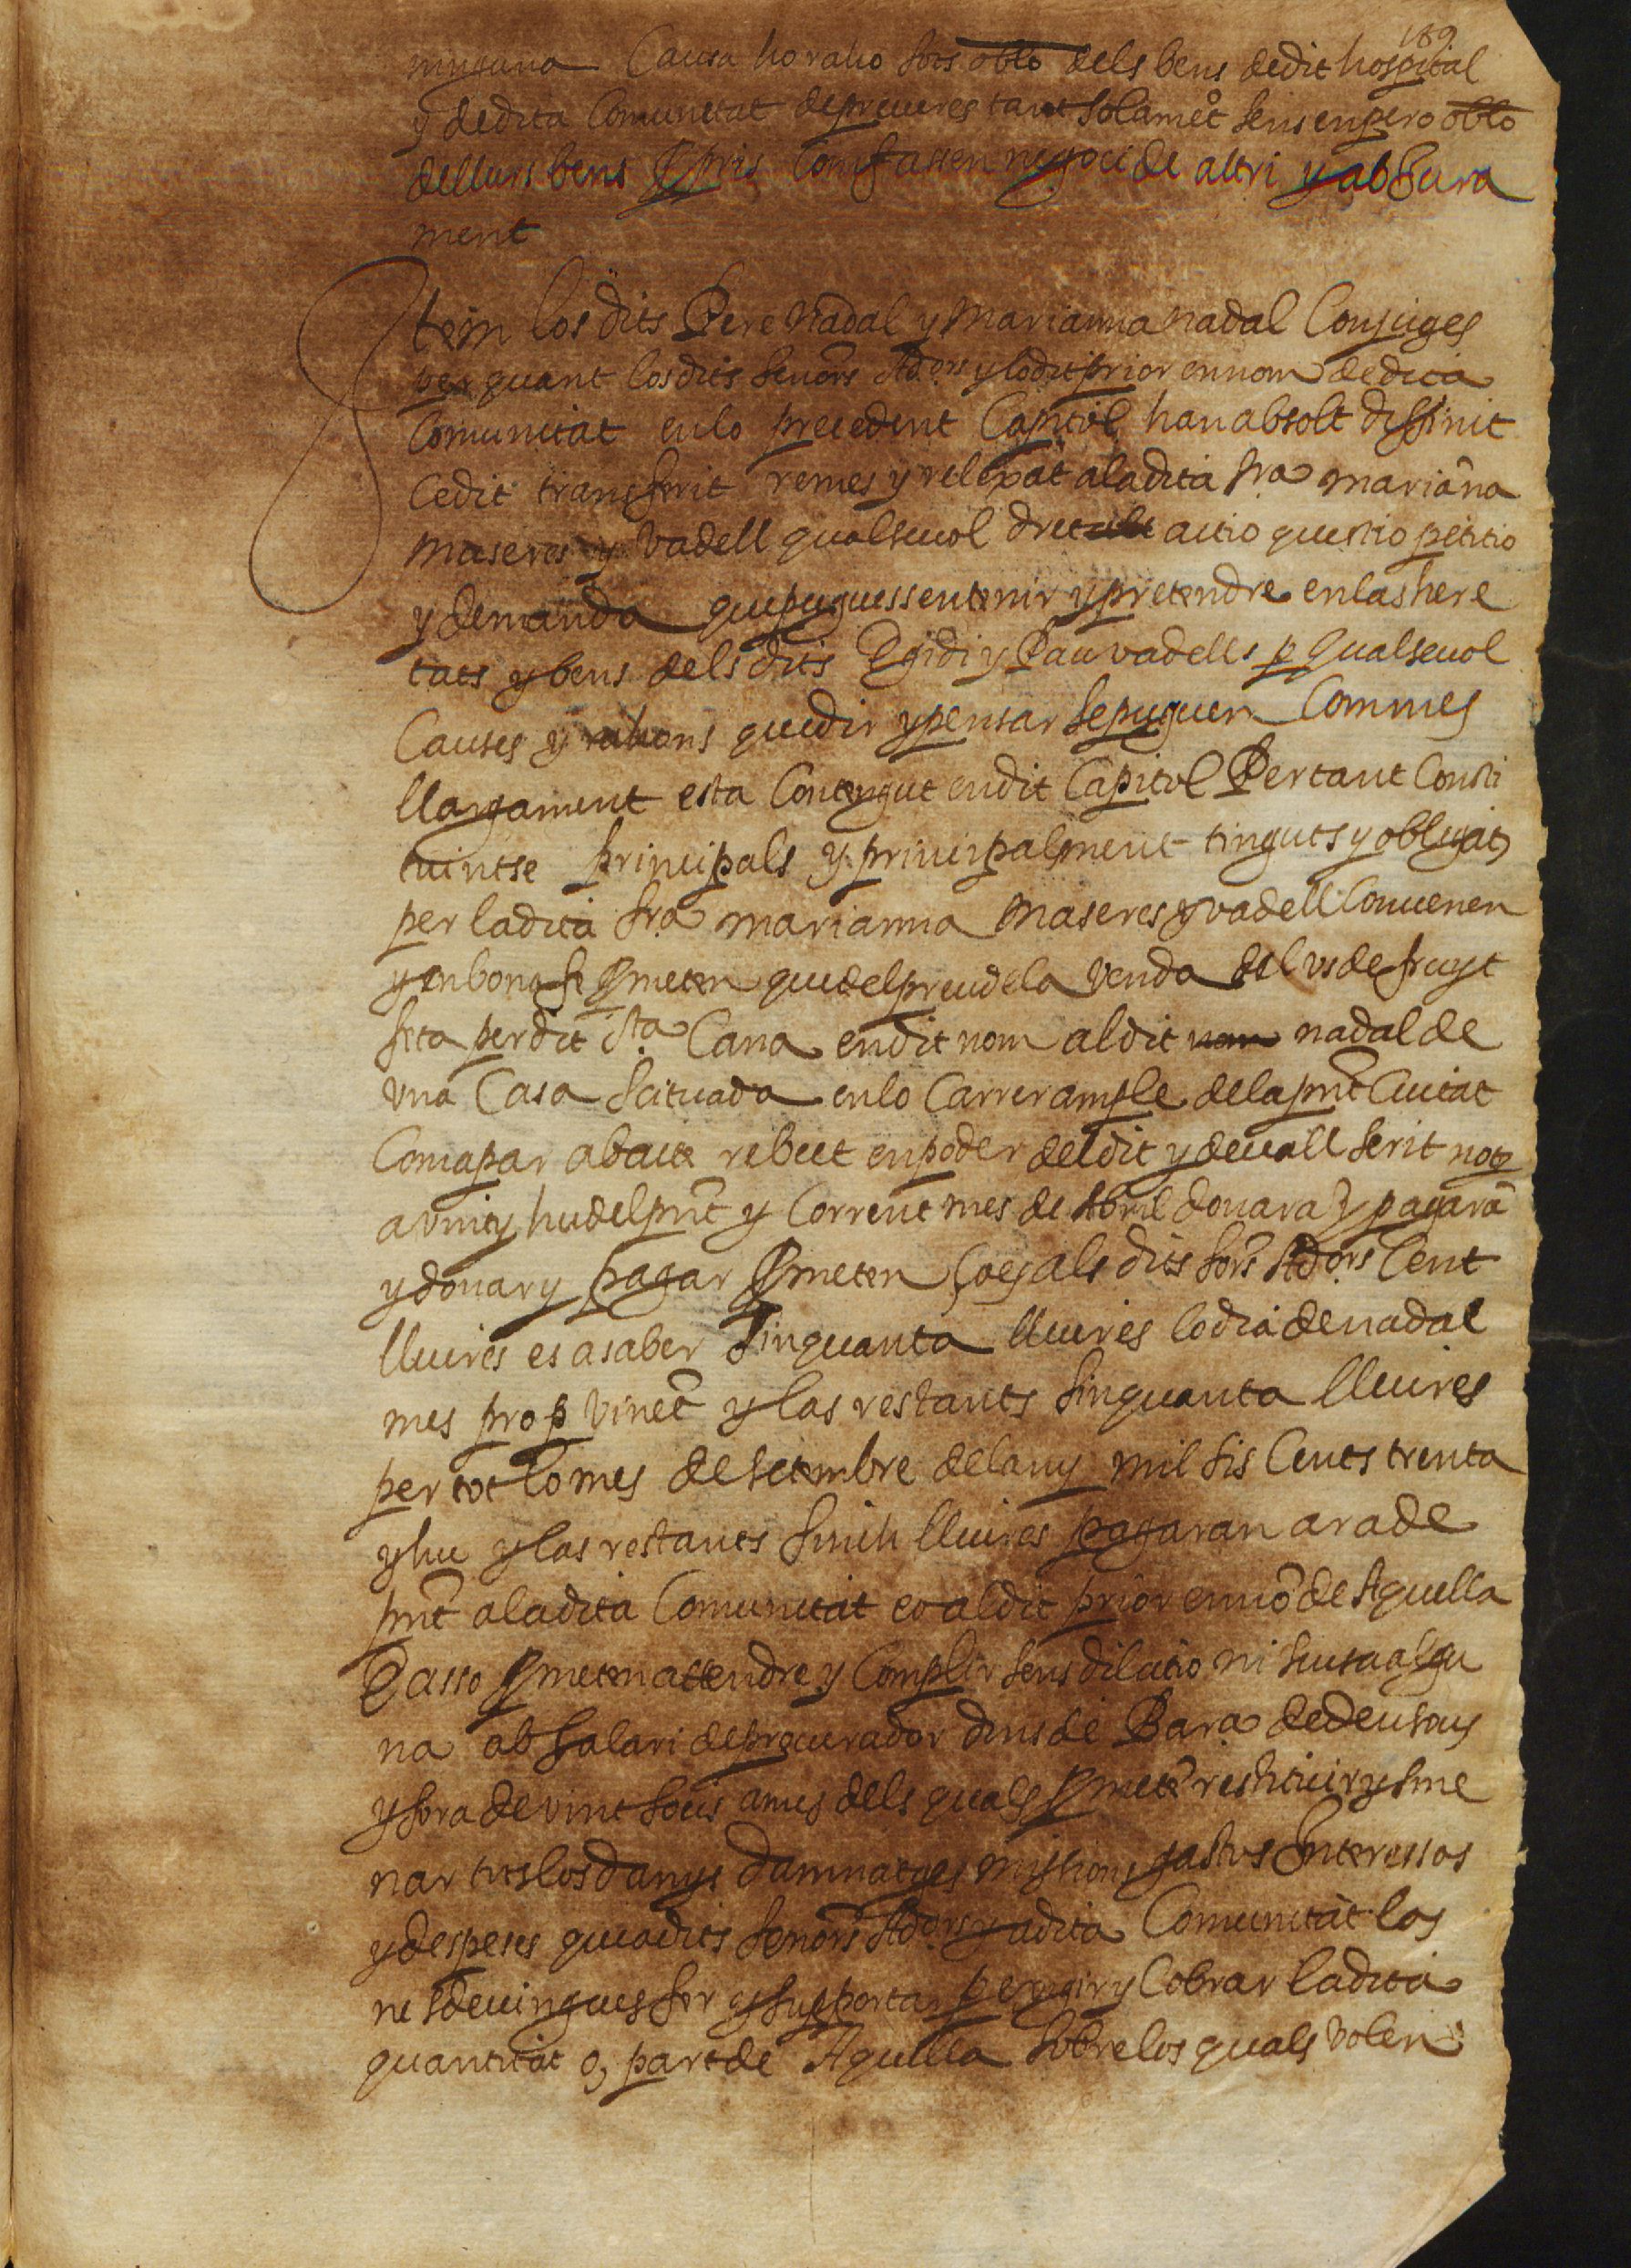 189
ninguna Causa ho raho sots oblo dels bens dedit hospital
y dedita Comunitat de preveres tant solamet sens empero oblo
de llurs bens ppris Com fassen negoci de altri y ab Jura
ment
Item los dits Pere Nadal y Marianna nadal Conjuges
per quant los dits senors Adors y lo dit prior en nom de dita
Comunitat en lo precedent Capitol han absolt diffinit
Cedit transferit remes y relexat a la dita sra marianna
maseres y Vadell qualsevol dret actio questio petitio
y demanda que puguessen tenir y pretendre en las here
tats y bens dels dits Egidi y Pau vadells p qualsevol
Causes y rahons que dir y pensar se puguen Com mes
llargament esta Contengut en dit Capitol Pertant Consti
tuintse principals y principalment tinguts y obligats
per la dita sra marianna Maseres y vadell Convenen
y en bona fe pmeten que del preu de la venda del vsdefruyt
feta per dit sta Cana en dit nom al dit nom nadal de
vna Casa scituada en lo Carrer ample de la pnt Ciutat
Com apar ab acte rebut en poder del dit y devall scrit not
a vint y hu del pnt y Corrent mes de Abril donara y pagara
y donar y pagar pmeten ço es als dits sors Adors Cent
lliures es a saber Sinquanta lliures lo dia de nadal
mes prop vinet y las restants sinquanta lliures
per tot lo mes de setembre del any mil sis Cents trenta
y hu y las restants sinch lliures pagaran ara de
pnt a la dita Comunitat eo al dit prior en nō de Aquella
E asso pmeten attendre y Complir sens dilatio ni scusa algu
na ab salari de procurador dins de Bara de deu sous
y fora de vint sous a mes dels quals pmetē restituir y sme
nar tots los danys damnatges missions gastos Interessos
y despeses que a dits senors Adors y a dita Comunitat los
ne sdevingues fer y supportar p exigir y Cobrar la dita
quantitat o, part de Aquella sobre los quals volen